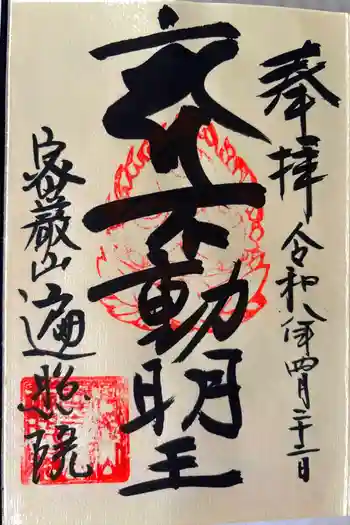 奉拝 令和八年四月二十二日
不動明王
密厳山 遍照院